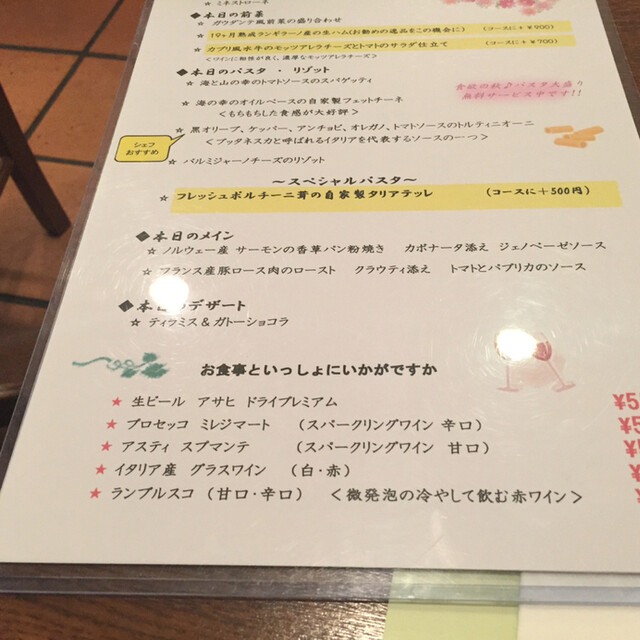 ☆ ミネストローネ
◆本日の前菜
☆ ガウダンテ風前菜の盛り合わせ
☆ 19ヶ月熟成ランギラーノ産の生ハム(お勧めの逸品をこの機会に) (コースに+¥900)
☆ カプリ風水牛のモッツアレラチーズとトマトのサラダ仕立て (コースに+¥700)
<ワインに相性が良く、濃厚なモッツアレラチーズ>
◆本日のパスタ ・ リゾット
☆ 海と山の幸のトマトソースのスパゲッティ
食欲の秋♪パスタ大盛り
無料サービス中です!!
☆ 海の幸のオイルベースの自家製フェットチーネ
<もちもちした食感が大好評>
シェフ
おすすめ
☆ 黒オリーブ、ケッパー、アンチョビ、オレガノ、トマトソースのトルティニオーニ
<プッタネスカと呼ばれるイタリアを代表するソースの一つ>
☆ パルミジャーノチーズのリゾット
～スペシャルパスタ～
☆ フレッシュポルチーニ茸の自家製タリアテッレ (コースに+500円)
◆本日のメイン
☆ ノルウェー産 サーモンの香草パン粉焼き カポナータ添え ジェノベーゼソース
☆ フランス産豚ロース肉のロースト クラウティ添え トマトとパプリカのソース
◆本日のデザート
☆ ティラミス&ガトーショコラ
お食事といっしょにいかがですか
★ 生ビール アサヒ ドライプレミアム ¥5
★ プロセッコ ミレジマート (スパークリングワイン 辛口) ¥5
★ アスティ スプマンテ (スパークリングワイン 甘口) ¥
★ イタリア産 グラスワイン (白・赤) ¥
★ ランブルスコ (甘口・辛口) <微発泡の冷やして飲む赤ワイン>